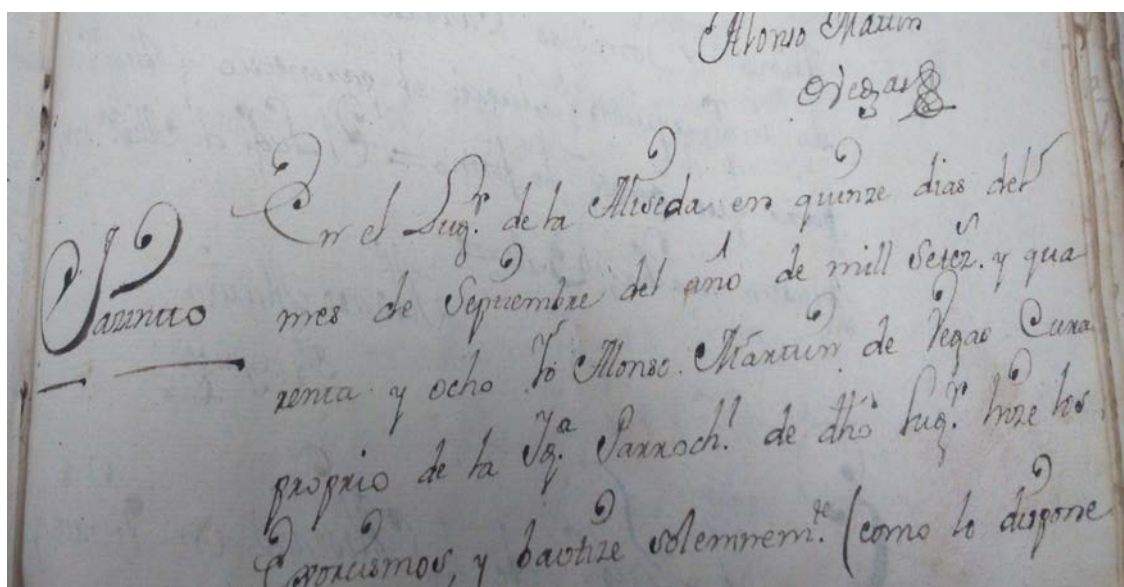 Alonso Martin
de Vegas
En el Lugr. de la Aliseda en quinze dias del
mes de Septiembre del año de mill Setez.s y qua
renta y ocho Yo Alonso Martin de Vegas Cura
proprio de la Yga. Parrochl. de dho Lugr. hize los
Exorcismos, y bautize solemnemte. (como lo dispone